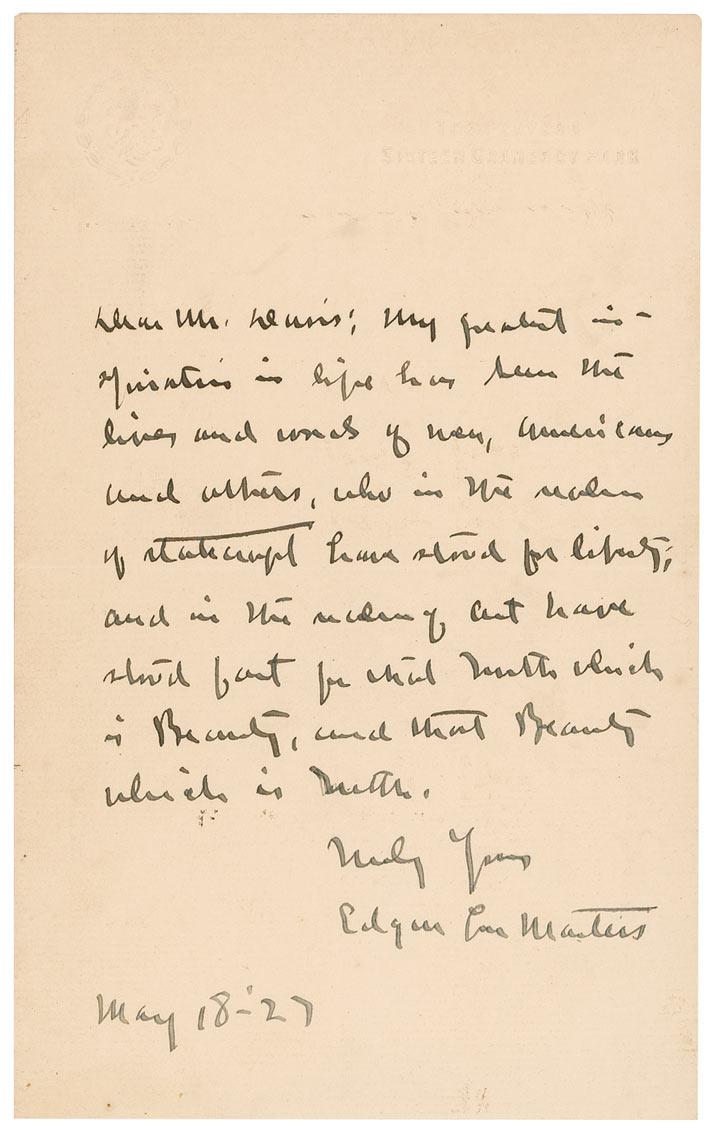 THE PLAYERS
SIXTEEN GRAMERCY PARK
Dear Mr. Davis; My greatest in-
spiration in life has been the
lives and words of men, Americans
and others, who in the realm
of statecraft have stood for liberty;
and in the realm of art have
stood fast for that Truth which
is Beauty, and that Beauty
which is Truth.
Truly Yours
Edgar Lee Masters
May 18-27